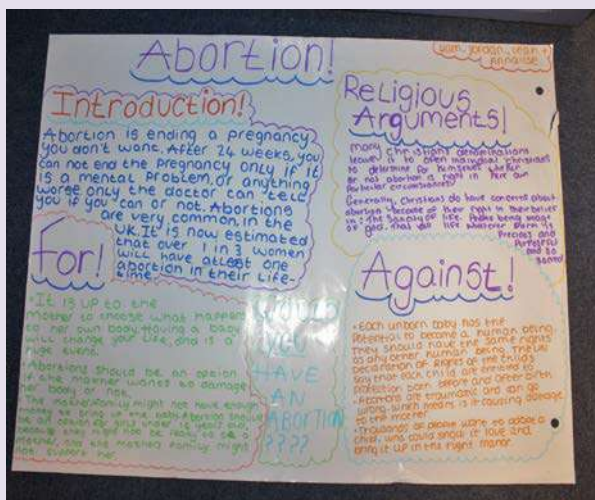 Abortion!
Liam, Jordan, Leah +
Annalise
Introduction!
Abortion is ending a pregnancy
you don't want. After 24 weeks, you
can not end the pregnancy only if it
is a mental problem, or anything
worse only the doctor can tell
you if you can or not. Abortions
are very common in the
UK. It is now estimated
that over 1 in 3 women
will have atleast one
abortion in their life-
time.
Religious
Arguments!
Many Christians denominations
leave it to often individual Christians
to determine for themselves whether
or not abortion is right in their own
particular circumstances
Generally, Christians do have concerns about
abortion because of their
in: the sanctity of life. People being image
of god. That all life whatever form is
Precious and
Purposful
and so
sacred
For!
• It is up to the
mother to choose what happens
to her own body. Having a baby
will change your life, and is a
huge event.
• Abortions should be an option
if the mother wanted to damage
her body or not.
The mother/family might not have enough
money to bring up the baby. Abortion should
be an option for girls under 16 years old,
because they may not be ready to be a
mother, and the mothers family might
not support her.
Would
you
HAVE
AN
ABORTION
????
Against!
• Each unborn baby has the
potential to become a human being.
They should have the same rights
as any other human being. The UN
Declaration of Rights of the Child
say that each child are entitled to
protection both before and after birth
• Abortions are traumatic and can go
wrong, which means it is causing damage
to the mother.
• Thousands of people want to adopt a
child, who could show it love and
bring it up in the right manor.